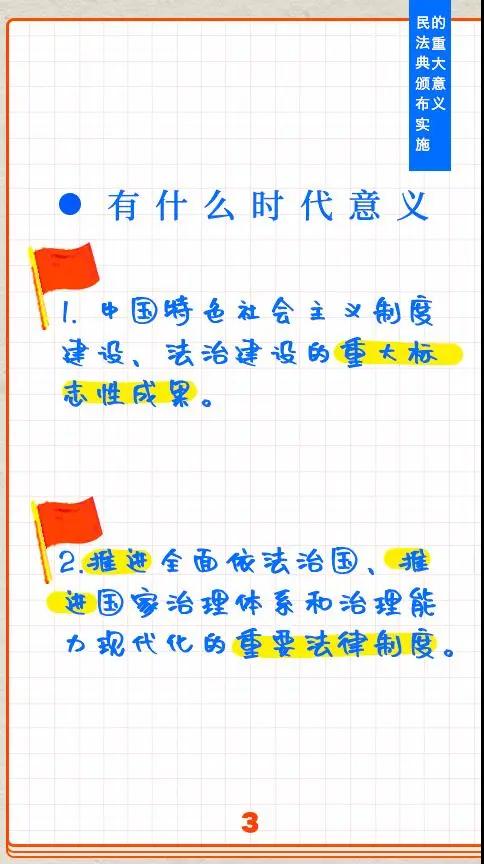 民法典颁布实施
的重大意义
有什么时代意义
1. 中国特色社会主义制度
建设、法治建设的重大标
志性成果。
2.推进全面依法治国、推
进国家治理体系和治理能
力现代化的重要法律制度。
3